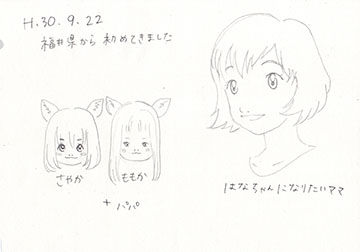 H.30.9.22
福井県から初めてきました
さやか
ももか
+ パパ
はなちゃんになりたいママ